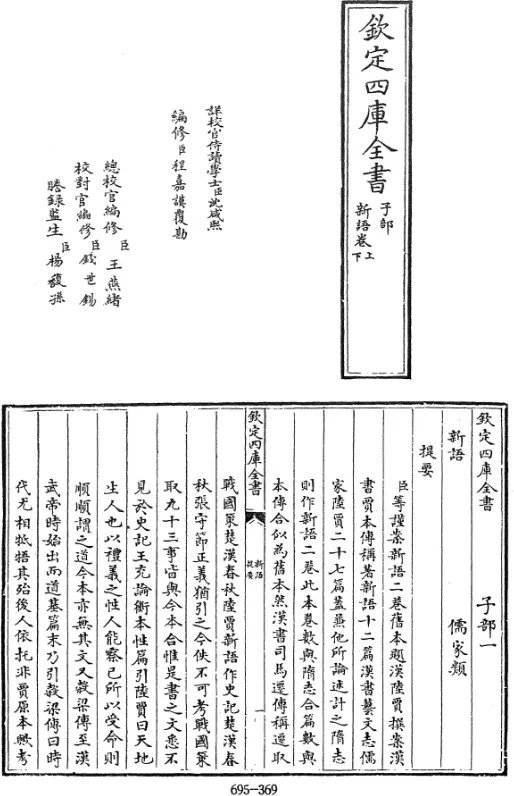 欽定四庫全書
子部
新語卷上下
詳校官侍讀學士臣沈咸熙
編修臣程嘉謨覆勘
總校官編修臣王燕緒
校對官編修臣錢世錫
謄錄監生臣楊馥孫
欽定四庫全書 子部一
新語 儒家類
提要
臣等謹案新語二卷舊本題漢陸賈撰案漢
書賈本傳稱著新語十二篇漢書藝文志儒
家陸賈二十七篇蓋兼他所論述計之隋志
則作新語二卷此本卷數與隋志合篇數與
本傳合似為舊本然漢書司馬遷傳稱遷取
欽定四庫全書 新語 提要 一
戰國策楚漢春秋陸賈新語作史記楚漢春
秋張守節正義猶引之今佚不可考戰國策
取九十三事皆與今本合惟是書之文悉不
見於史記王充論衡本性篇引陸賈曰天地
生人也以禮義之性人能察己所以受命則
順順謂之道今本亦無其文又穀梁傳至漢
武帝時始出而道基篇末乃引穀梁傳曰時
代尤相牴牾其殆後人依托非賈原本歟考
695-369